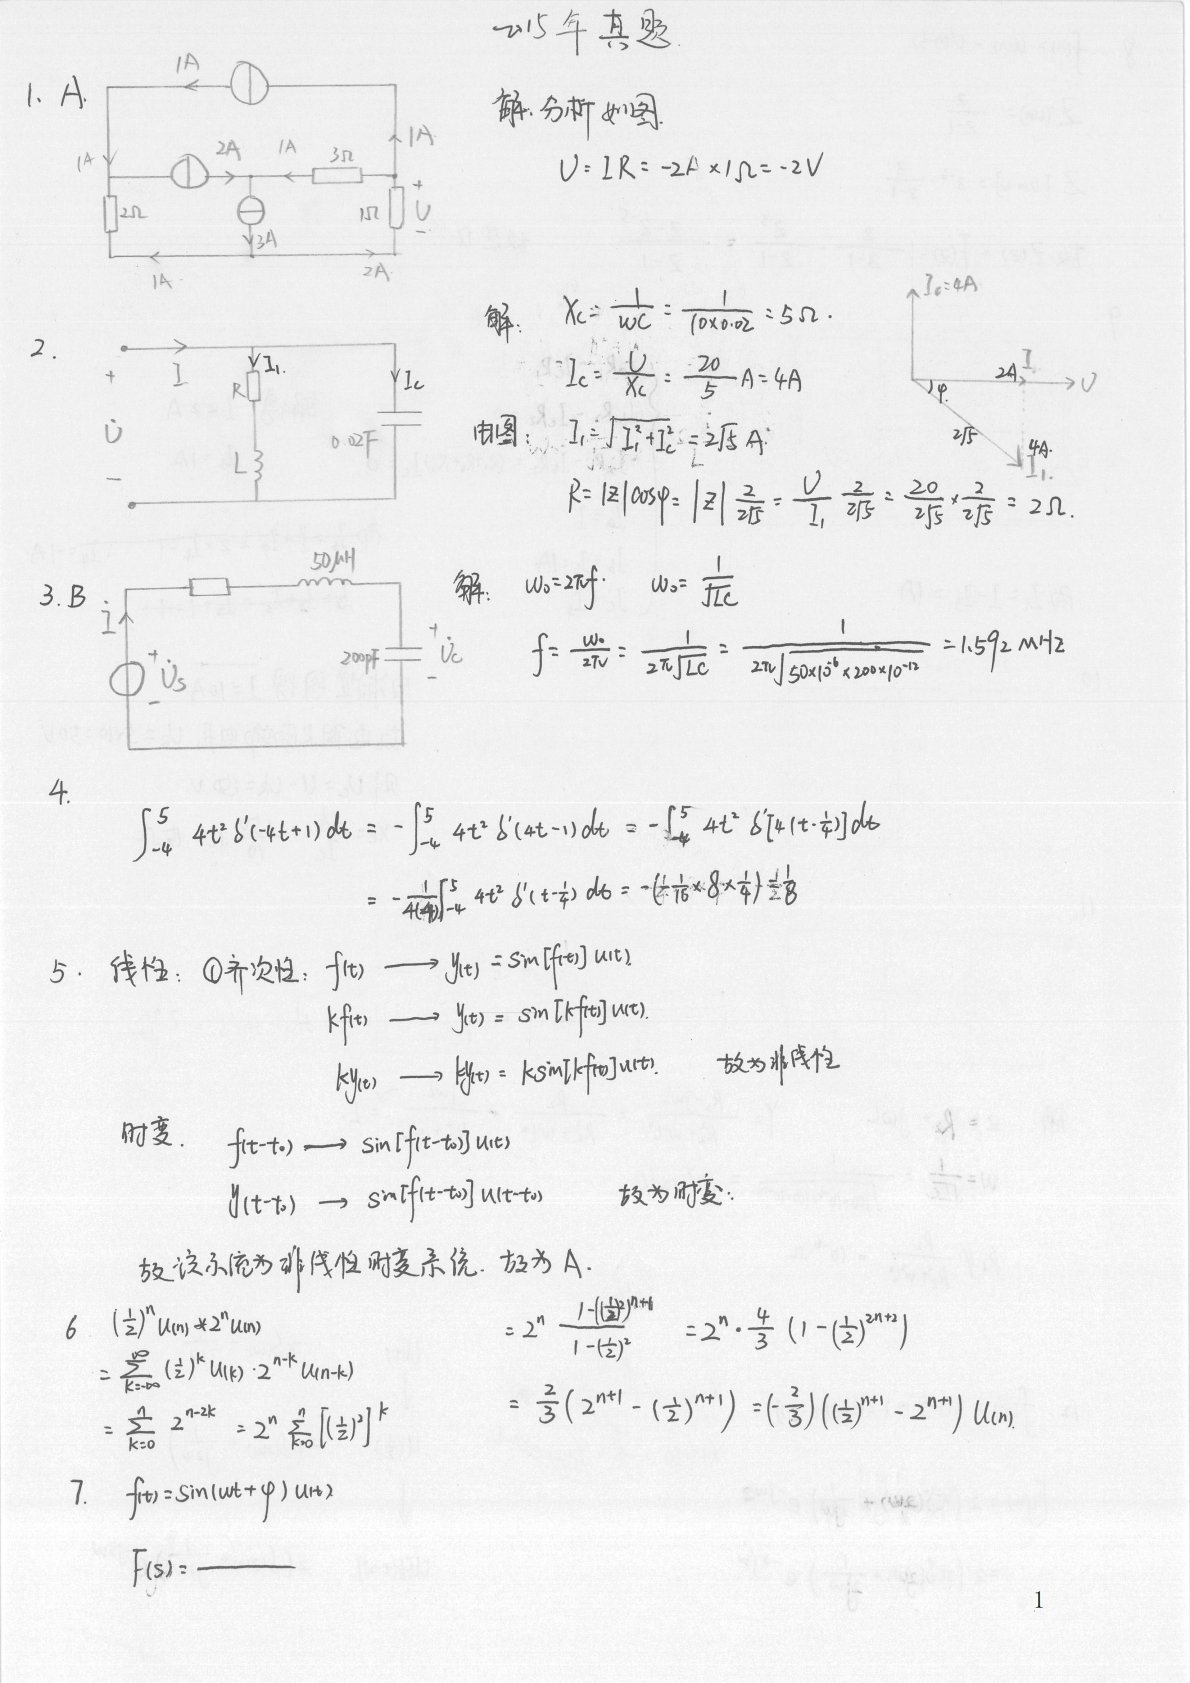 2015年真题.
1. A.
1A
1A
2A
1A
3Ω
1A
2Ω
3A
1Ω
+
U
-
1A
2A
解: 分析如图.
U=IR=-2A×1Ω=-2V
2.
+
U̇
-
I
I₁
R
L
Ic
0.02F
解: Xc = 1/ωC = 1/(10×0.02) = 5Ω.
Ic = U/Xc = 20/5 A = 4A
由图: I₁ = √(I₁²+Ic²) = 2√5 A.
R = |Z|cosφ = |Z| 2/(2√5) = U/I₁ 2/(2√5) = 20/(2√5) × 2/(2√5) = 2Ω.
Ic=4A
2A
I
U
φ.
2√5
4A.
I₁.
3. B
İ
50μH
+
U̇s
-
200pF
+
U̇c
-
解: ω₀=2πf. ω₀ = 1/√LC
f = ω₀/2π = 1/(2π√LC) = 1/(2π√(50×10⁻⁶×200×10⁻¹²)) = 1.592 MHz
4.
∫₋₄⁵ 4t² δ'(-4t+1) dt = -∫₋₄⁵ 4t² δ'(4t-1) dt = -∫₋₄⁵ 4t² δ'[4(t-1/4)] dt
∫₋₄⁵ 4t² δ'(t-1/4) dt =
5. 线性: ①齐次性: f(t) ⟶ y(t) = sin[f(t)] u(t).
kf(t) ⟶ y(t) = sin[kf(t)] u(t).
ky(t) ⟶ ky(t) = ksin[kf(t)] u(t). 故为非线性
时变. f(t-t₀) ⟶ sin[f(t-t₀)] u(t)
y(t-t₀) → sin[f(t-t₀)] u(t-t₀) 故为时变:
故该系统为非线性时变系统. 故为A.
6 (1/2)ⁿ u(n) * 2ⁿ u(n)
= Σ_{k=-∞}^{∞} (1/2)^k u(k) · 2^{n-k} u(n-k)
= Σ_{k=0}^{n} 2^{n-2k} = 2ⁿ Σ_{k=0}^{n} [(1/2)²]^k
= 2ⁿ (1-((1/2)²)^{n+1})/(1-(1/2)²) = 2ⁿ · 4/3 (1-(1/2)^{2n+2})
= 2/3 (2^{n+1} - (1/2)^{n+1}) = (-2/3)((1/2)^{n+1} - 2^{n+1}) u(n).
7. f(t) = sin(ωt+φ) u(t)
F(s) =
1